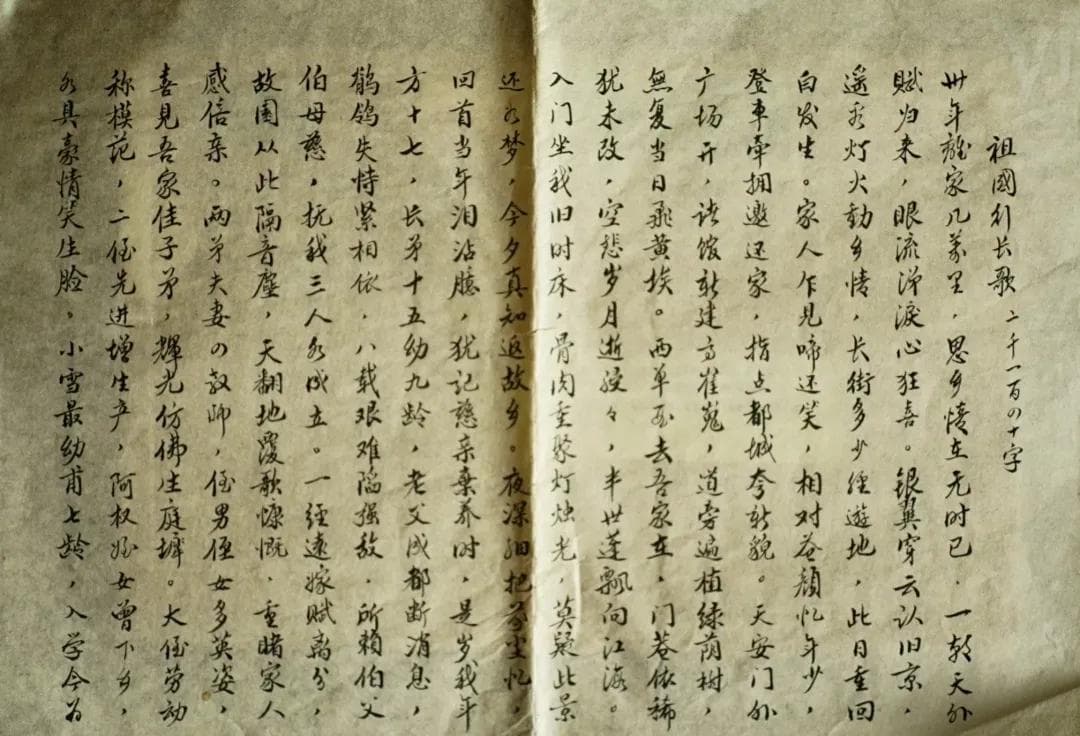 祖國行长歌 二千一百四十字
卅年離家几萬里，思乡情在无时已．一朝天外
赋归来，眼流涕淚心狂喜。银翼穿云认旧京，
遥看灯火動乡情，长街多少经遊地，此日重回
白发生。家人乍见啼还笑，相对苍颜忆年少，
登車牵拥邀还家，指点都城夸新貌。天安门外
广场开，诸馆新建高崔嵬，道旁遍植绿荫树，
無复当日飛黄埃。西单西去吾家在，门巷依稀
犹未改，空悲岁月逝骎々，半世蓬飘向江海。
入门坐我旧时床，骨肉重聚灯烛光，莫疑此景
还如梦，今夕真知返故乡。夜深细把前尘忆，
回首当年泪沾臆，犹记慈亲弃养时，是岁我年
方十七，长弟十五幼九龄，老父成都断消息，
鹡鸰失恃紧相依．八载艰难陷强敌．所赖伯父
伯母慈，抚我三人各成立。一经遠嫁赋离分，
故園从此隔音塵，天翻地覆歌慷慨．重睹家人
感倍亲。两弟夫妻四教师，侄男侄女多英姿，
喜見吾家佳子弟，輝光仿佛生庭墀。大侄劳动
称模范，二侄先进增生产，阿权侄女曾下乡，
各具豪情笑生脸。小雪最幼甫七龄，入学今为